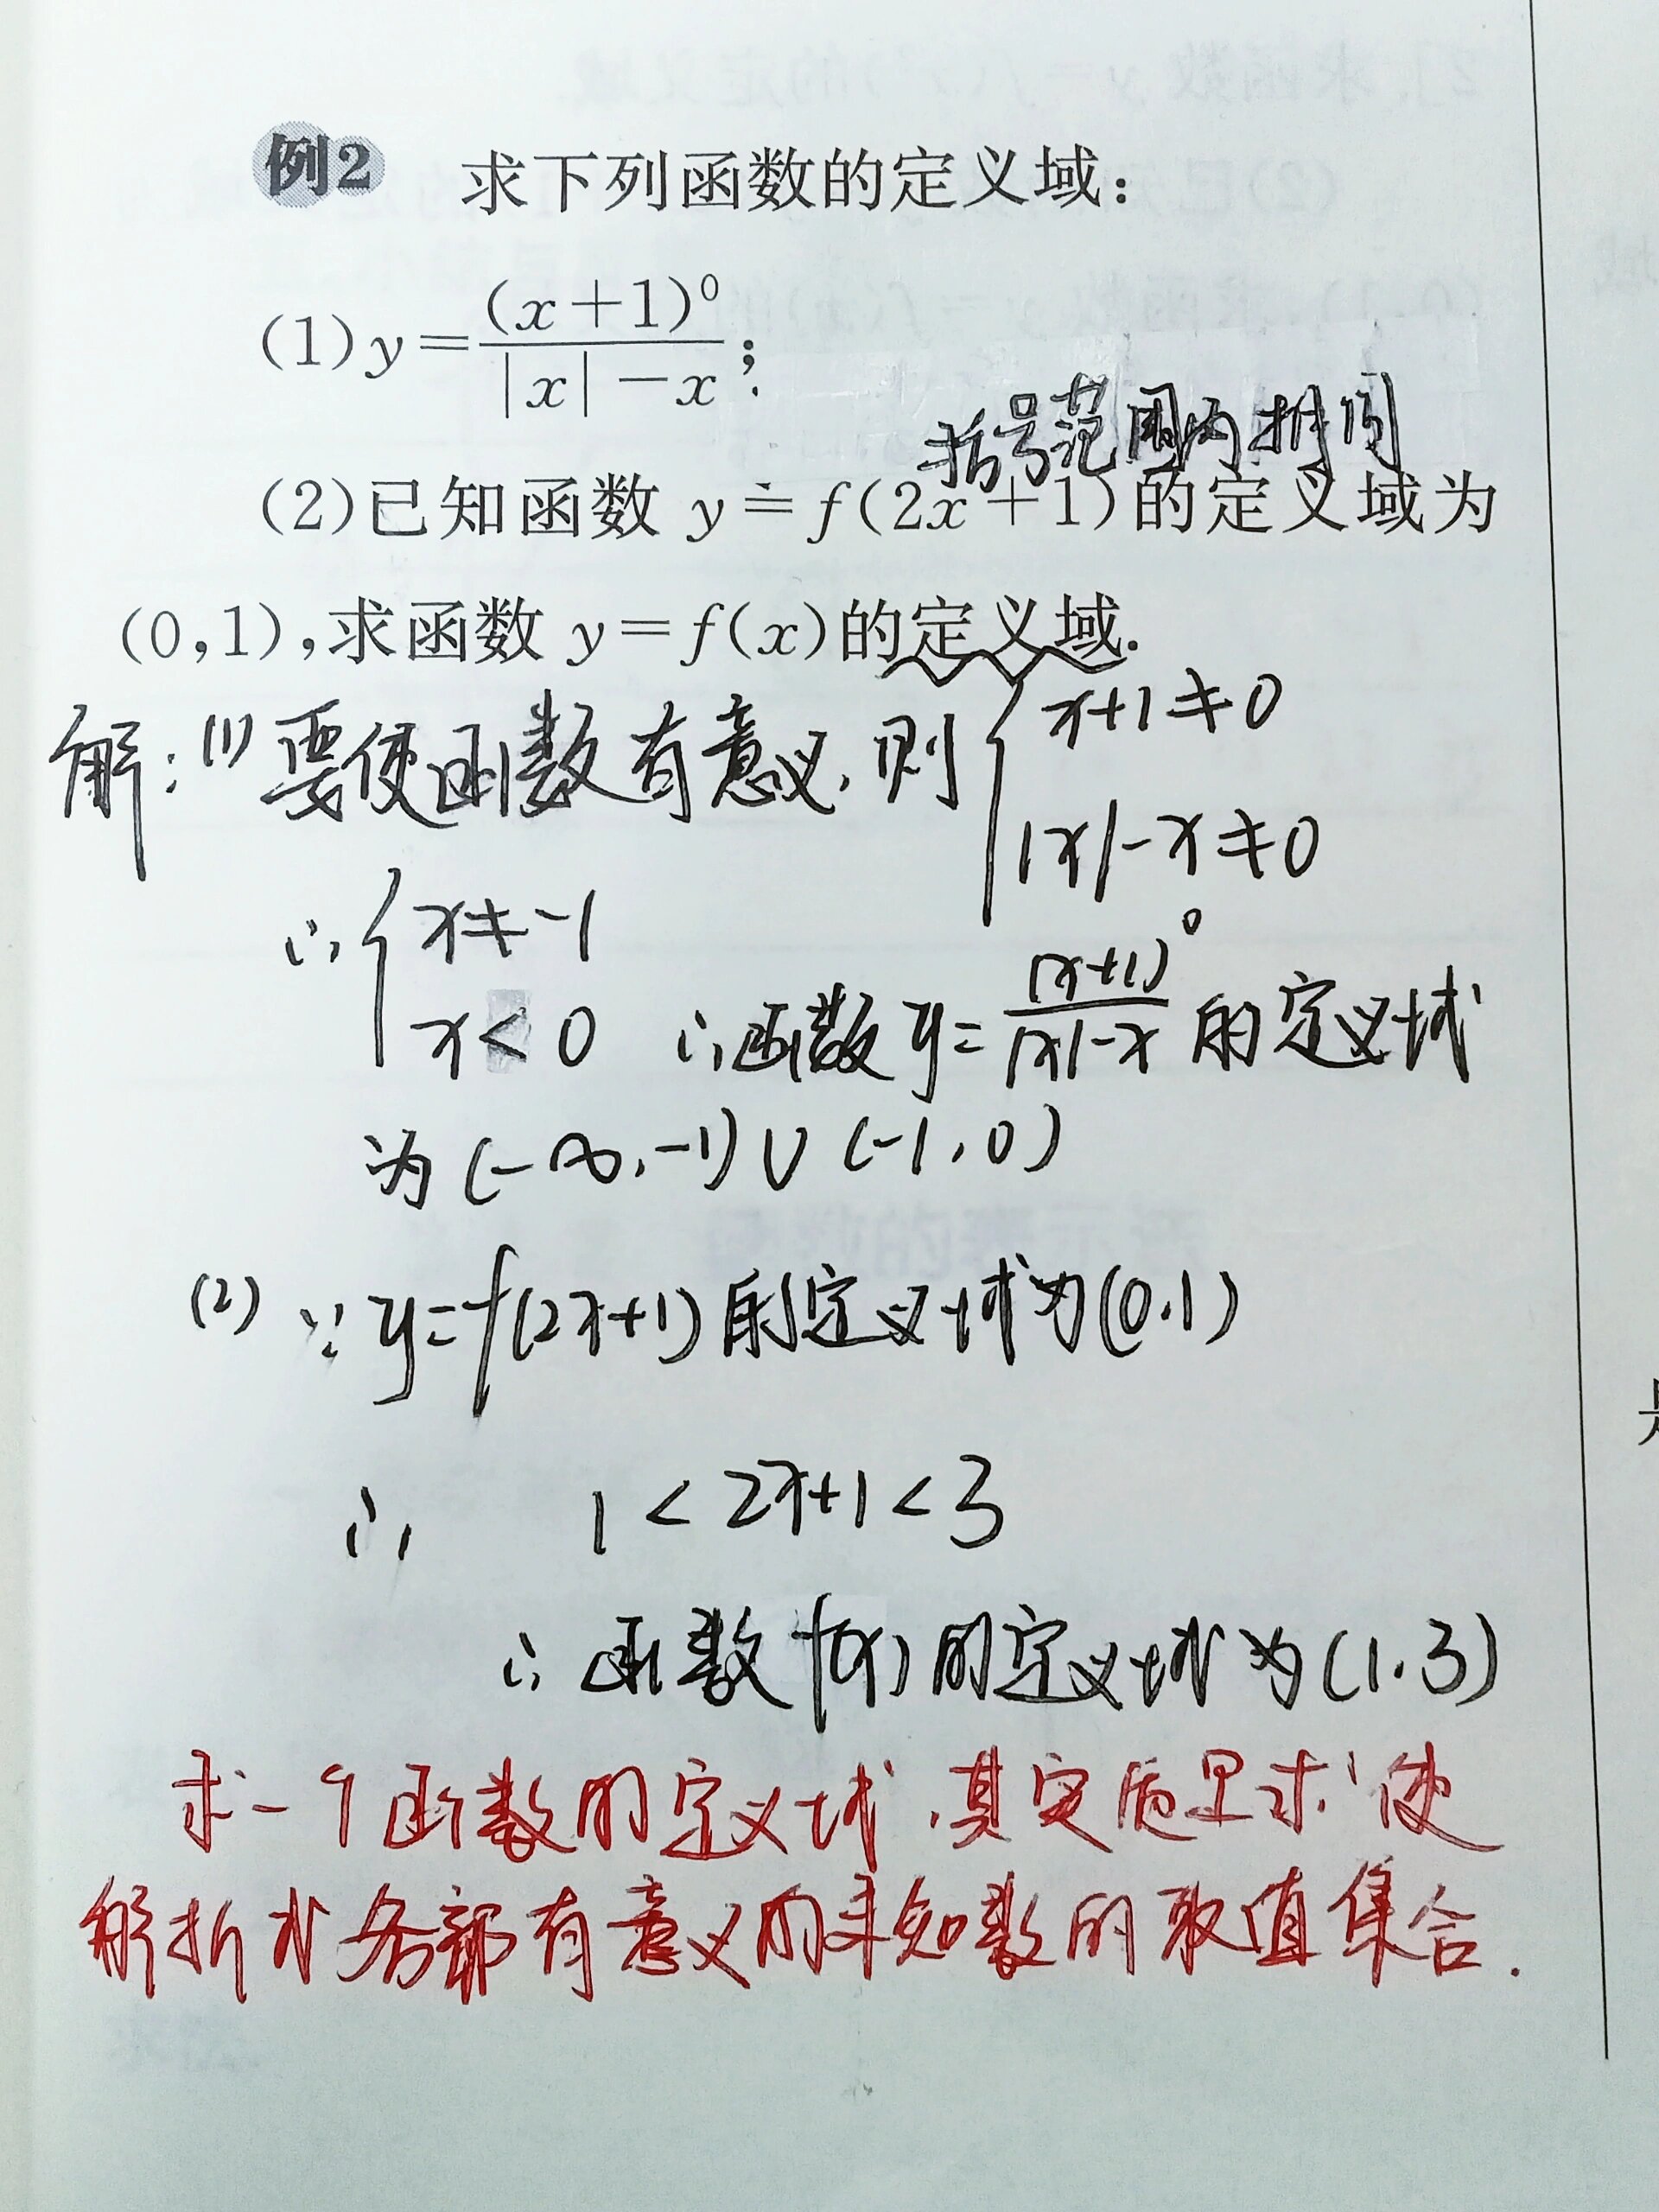 例2 求下列函数的定义域:
(1) y = (x+1)⁰ / (|x| - x);
括号范围内相同
(2)已知函数 y = f(2x+1)的定义域为
(0,1),求函数 y = f(x)的定义域.
解:(1) 要使函数有意义,则 { x+1≠0
|x|-x≠0
∴ { x≠-1
x<0 ∴函数 y = (x+1)⁰ / (|x|-x) 的定义域
为 (-∞,-1)∪(-1,0)
(2) ∵ y=f(2x+1)的定义域为(0,1)
∴ 1<2x+1<3
∴ 函数f(x)的定义域为(1,3)
求一个函数的定义域,其实质是求使
解析式各部有意义的未知数的取值集合.